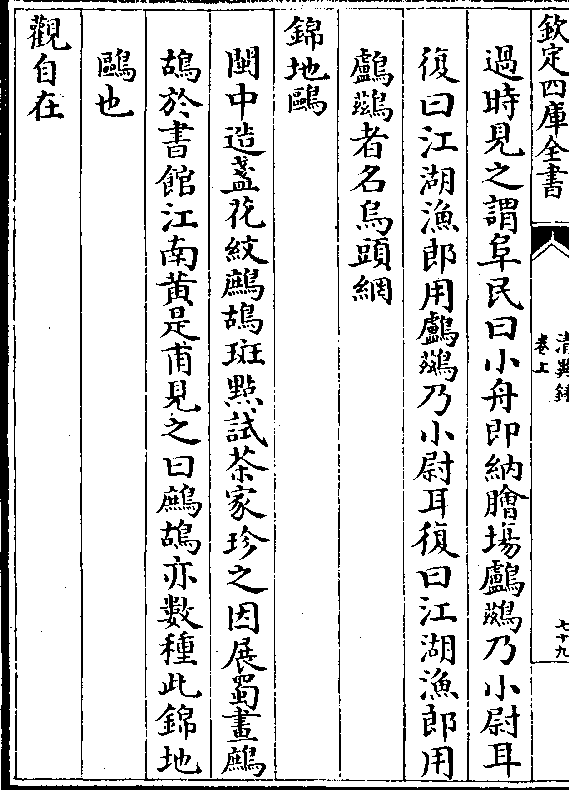 欽定四庫全書
清異錄
卷上
七十九
過時見之謂阜民曰小舟即納膾場鸕鷀乃小尉耳
復曰江湖漁郎用鸕鷀乃小尉耳復曰江湖漁郎用
鸕鷀者名烏頭網
錦地鷗
閩中造盞花紋鷓鴣斑點試茶家珍之因展蜀畫鷓
鴣於書館江南黃是甫見之曰鷓鴣亦數種此錦地
鷗也
觀自在